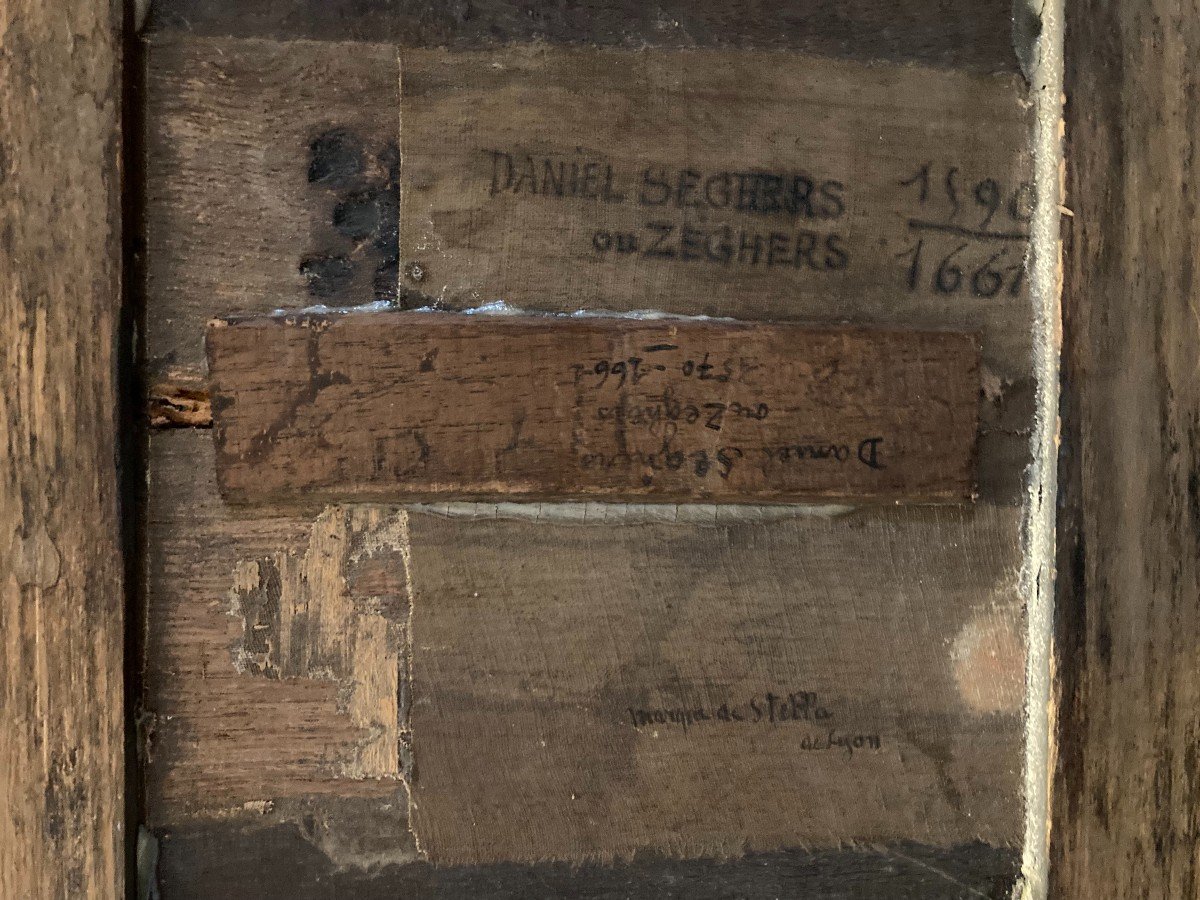 DANIEL SEGHERS 1590
ou ZEGHERS 1661
Daniel Seghers
ou Zeghers
1570 - 1661
de Stella
de Lyon